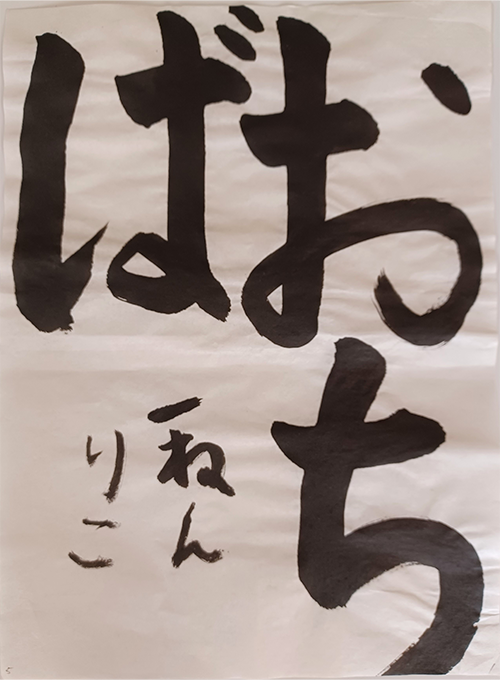 おち
ば
一ねん
りこ